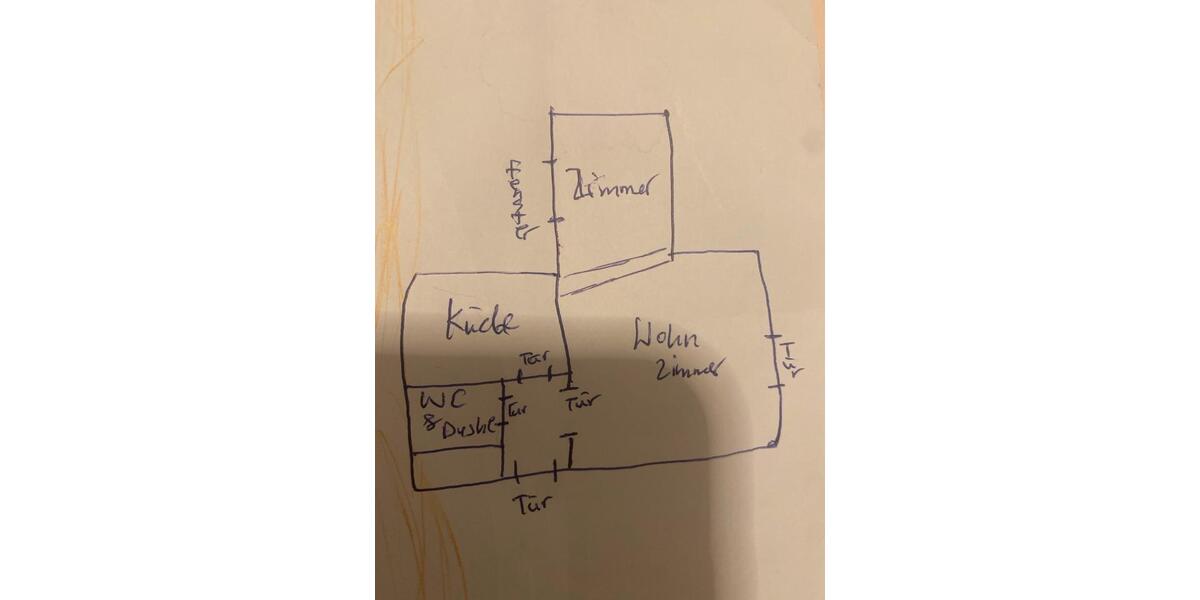 Zimmer
Küche
Wohn
zimmer
Tür
Tür
WC
& Dushe
Tür
Tür
Tür